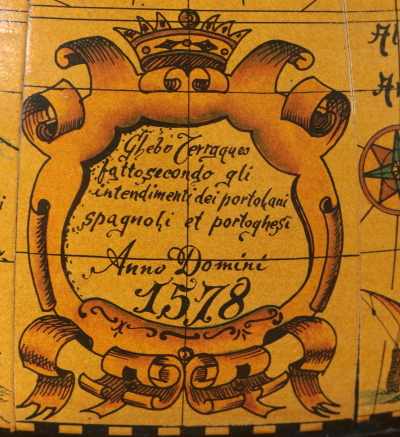 Ghebo Terraqueo
fatto secondo gli
intendimenti dei portolani
spagnoli et portoghesi
Anno Domini
1578